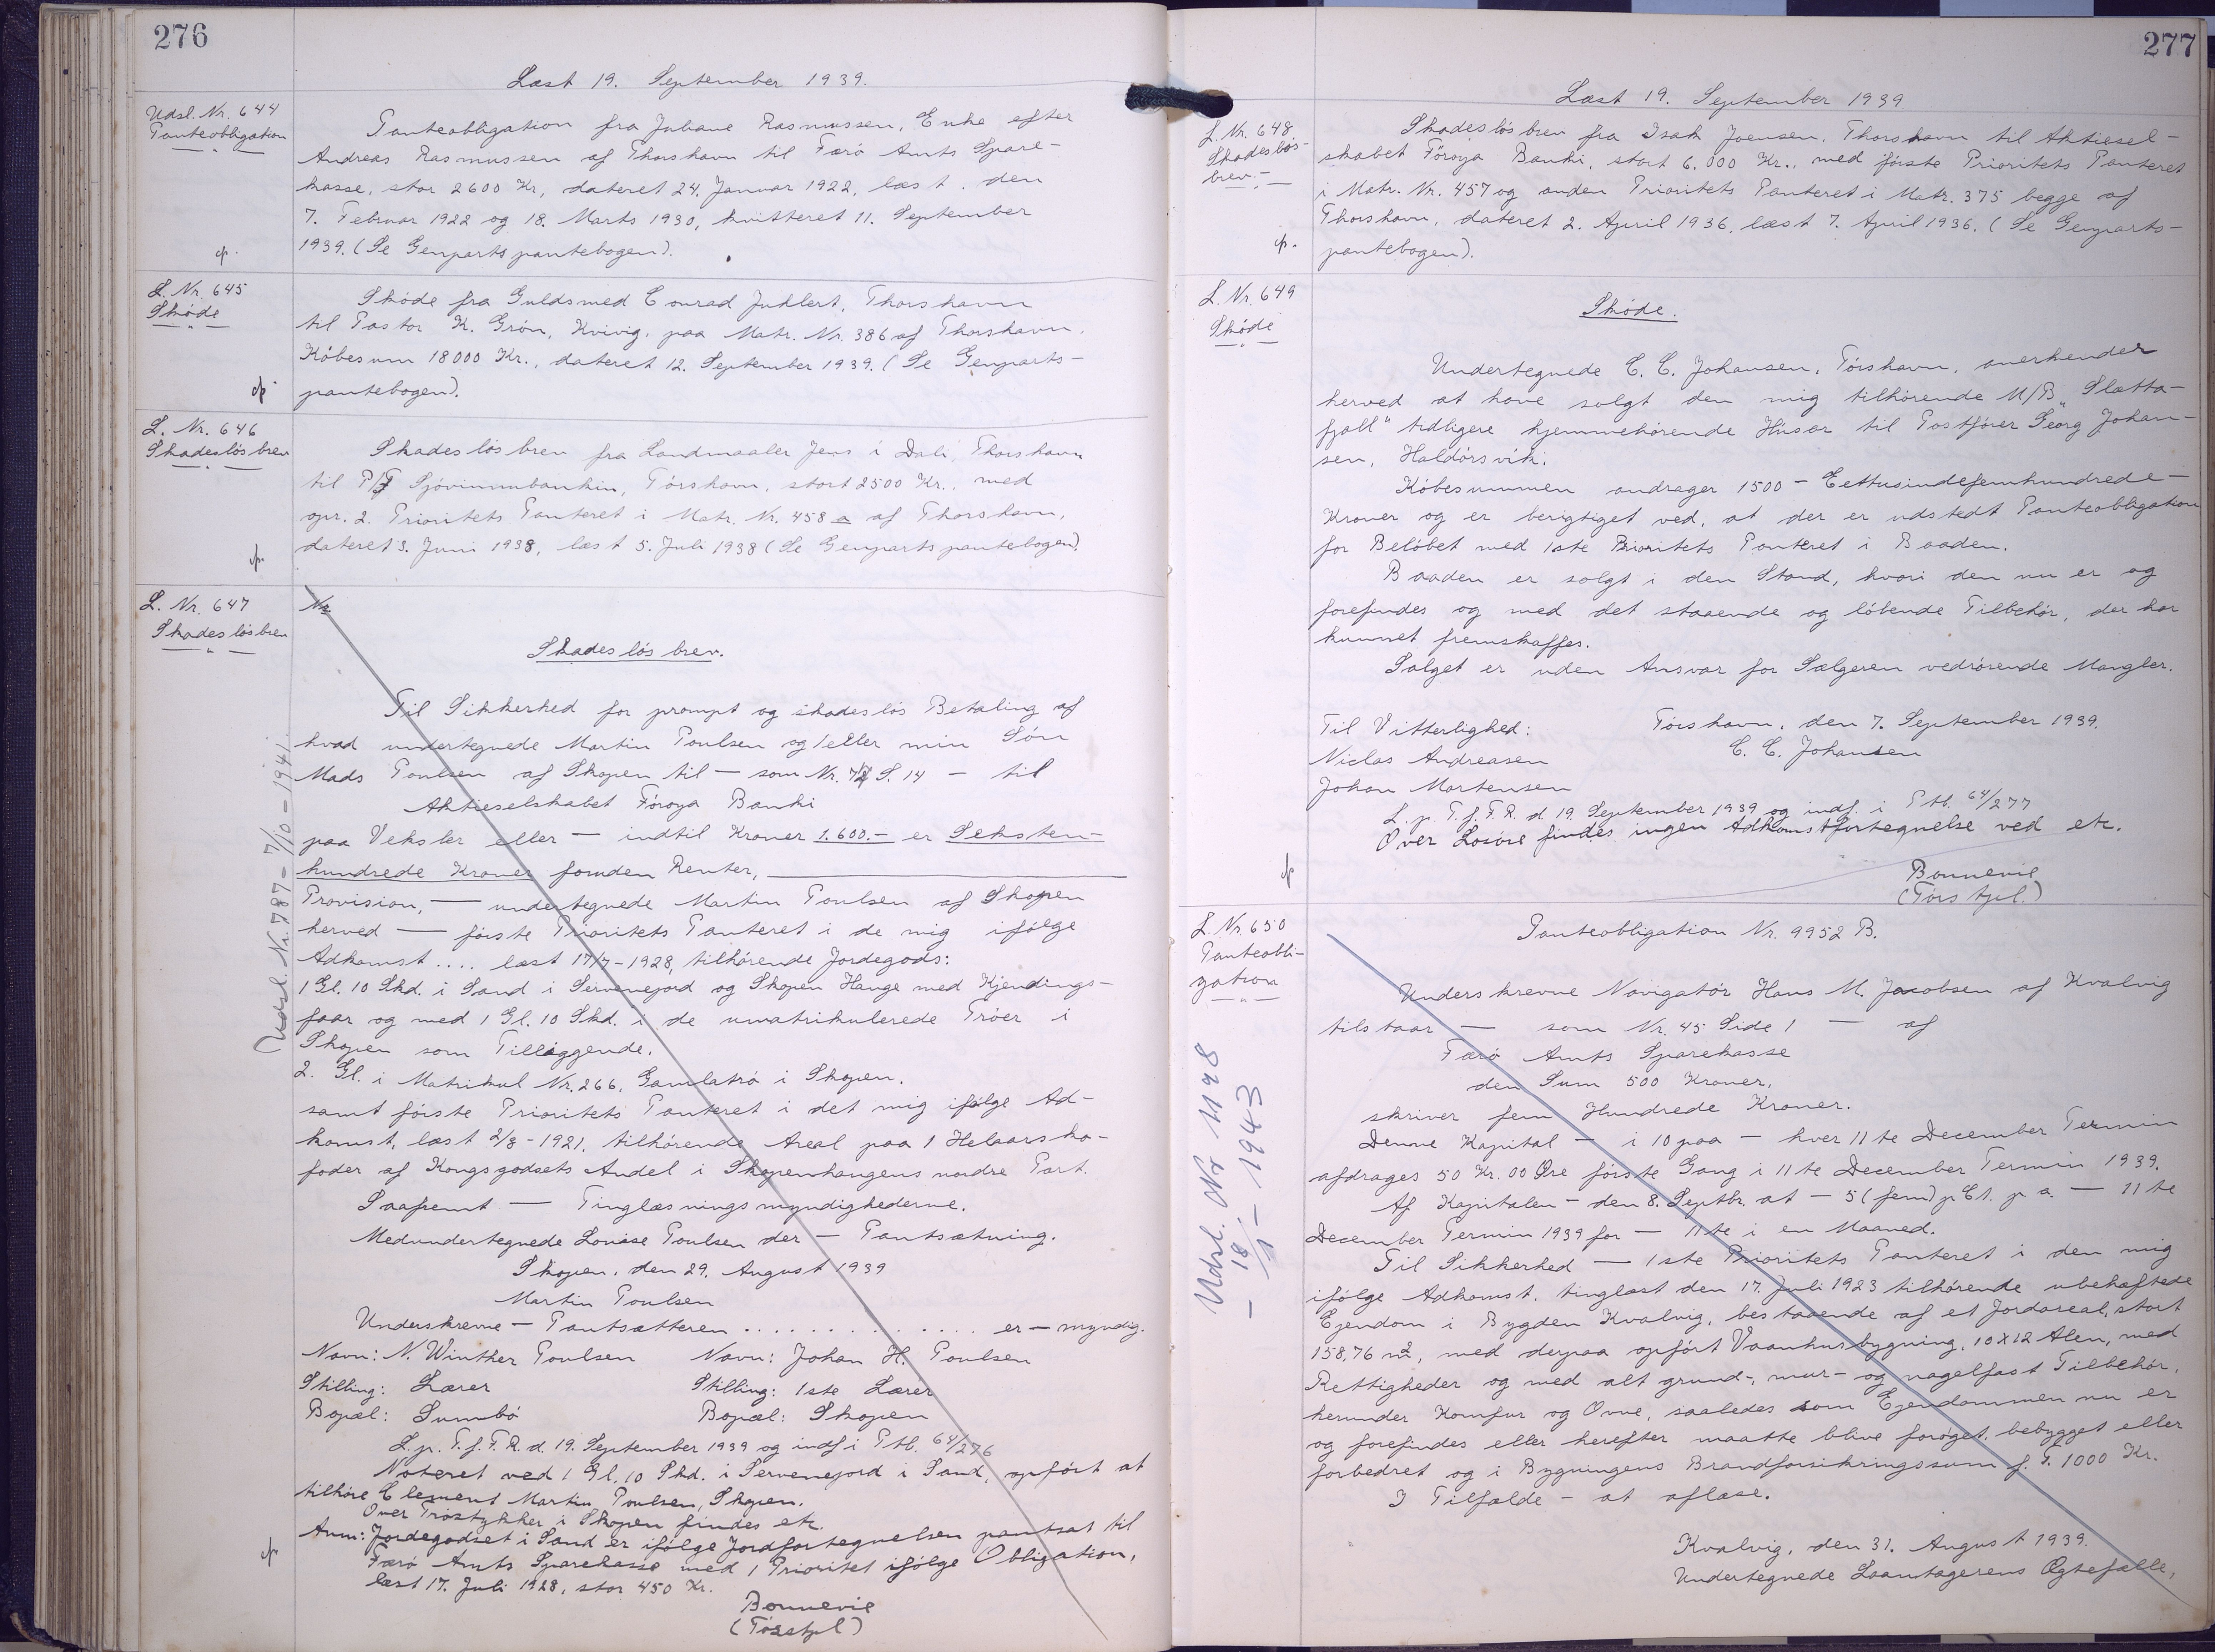 276
Læst 19. September 1939.
Udsl. Nr. 644
Panteobligation
Panteobligation fra Juliane Rasmussen, Enke efter
Andreas Rasmussen af Thorshavn til Færø Amts Spare-
kasse, stor 2600 Kr., dateret 24. Januar 1922, læst den
7. Februar 1922 og 18. Marts 1930, kvitteret 11. September
1939. (Se Genpartspantebogen).
L. Nr. 645
Skøde
Skøde fra Guldsmed Conrad Juhlert, Thorshavn
til Pastor K. Grøn, Kvivig, paa Matr. Nr. 386 af Thorshavn.
Købesum 18000 Kr., dateret 12. September 1939. (Se Genparts-
pantebogen).
L. Nr. 646
Skadesløsbrev
Skadesløsbrev fra Landmaaler Jens í Dali, Thorshavn
til P/F Sjóvinnubankin, Tórshavn, stort 2500 Kr., med
opr. 2. Prioritets Panteret i Matr. Nr. 458 a af Thorshavn,
dateret 3. Juni 1938, læst 5. Juli 1938 (Se Genpartspantebogen).
L. Nr. 647
Skadesløsbrev
Nr
Skadesløsbrev.
Til Sikkerhed for prompt og skadesløs Betaling af
hvad undertegnede Martin Poulsen og/eller min Søn
Mads Poulsen af Skopen til — som Nr. 42 S. 14 — til
Aktieselskabet Føroya Banki
paa Veksler eller — indtil Kroner 1.600.- er Seksten-
hundrede Kroner foruden Renter,
Provision, — undertegnede Martin Poulsen af Skopen
herved — første Prioritets Panteret i de mig ifølge
Adkomst .... læst 17/7-1928, tilhørende Jordegods:
1 Gl. 10 Skd. i Sand i Servenejord og Skopen Hauge med Kjendings-
faar og med 1 Gl. 10 Skd. i de umatrikulerede Trøer i
Skopen som Tilliggende.
2. Gl. i Matrikul Nr. 266, Gamlatrø i Skopen.
samt første Prioritets Panteret i det mig ifølge Ad-
komst, læst 2/8-1921, tilhørende Areal paa 1 Helaarsko-
foder af Kongsgodsets Andel i Skopenhaugens nordre Part.
Saafremt — Tinglæsningsmyndighederne.
Medundertegnede Louise Poulsen der — Pantsætning.
Skopen, den 29. August 1939
Martin Poulsen
Underskrevne — Pantsætteren .............. er — myndig.
Navn: N. Winther Poulsen Navn: Johan H. Poulsen
Stilling: Lærer Stilling: 1ste Lærer
Bopæl: Sumbø Bopæl: Skopen
L. p. T. f. F. R. d. 19. September 1939 og indf. i Ptb. 64/276
Noteret ved 1 Gl. 10 Skd. i Servenejord i Sand, opført at
tilhøre Clement Martin Poulsen, Skopen.
Over Trøstykker i Skopen findes etc.
Anm: Jordegodset i Sand er ifølge Jordfortegnelsen pantsat til
Færø Amts Sparekasse med 1 Prioritet ifølge Obligation,
læst 17. Juli 1928, stor 450 Kr.
Bonnevie
(Tórstjl)
Udsl. Nr. 787 - 7/10 - 1941
277
Læst 19. September 1939
L. Nr. 648
Skadesløs-
brev.
Skadesløsbrev fra Isak Joensen, Thorshavn til Aktiesel-
skabet Føroya Banki, stort 6.000 Kr., med første Prioritets Panteret
i Matr. Nr. 457 og anden Prioritets Panteret i Matr. 375 begge af
Thorshavn, dateret 2. April 1936, læst 7. April 1936. (Se Genparts-
pantebogen).
L. Nr. 649
Skøde
Skøde.
Undertegnede C. C. Johansen, Tórshavn, anerkender
herved at have solgt den mig tilhørende M/B „Slætta-
fjall" tidligere hjemmehørende Húsar til Postfører Georg Johan-
sen, Haldórsvík.
Købesummen andrager 1500 - Eettusindefemhundrede -
Kroner og er berigtiget ved, at der er udstedt Panteobligation
for Beløbet med 1ste Prioritets Panteret i Baaden.
Baaden er solgt i den Stand, hvori den nu er og
forefindes og med det staaende og løbende Tilbehør, der har
kunnet fremskaffes.
Salget er uden Ansvar for Sælgeren vedrørende Mangler.
Til Vitterlighed: Tórshavn, den 7. September 1939.
Niclas Andreasen C. C. Johansen
Johan Mortensen
L. p. T. f. F. R. d. 19. September 1939 og indf. i Ptb. 64/277
Over Løsøre findes ingen Adkomstfortegnelse ved etc.
Bonnevie
(Tórstjl.)
L. Nr. 650
Panteobli-
gation
Panteobligation Nr. 9952 B.
Underskrevne Navigatør Hans M. Jacobsen af Kvalvig
tilstaar — som Nr. 45 Side 1 — af
Færø Amts Sparekasse
den Sum 500 Kroner,
skriver fem Hundrede Kroner.
Denne Kapital — i 10 paa — hver 11te December Termin
afdrages 50 Kr. 00 Øre første Gang i 11te December Termin 1939.
Af Kapitalen — den 8. Septbr. at — 5 (fem) p Ct. p. a. — 11te
December Termin 1939 for — 11te i en Maaned.
Til Sikkerhed — 1ste Prioritets Panteret i den mig
ifølge Adkomst, tinglæst den 17. Juli 1923 tilhørende ubehæftede
Ejendom i Bygden Kvalvig, bestaaende af et Jordareal, stort
158,76 m2, med derpaa opført Vaanhusbygning, 10x12 Alen, med
Rettigheder og med alt grund-, mur- og nagelfast Tilbehør,
herunder Komfur og Ovne, saaledes som Ejendommen nu er
og forefindes eller herefter maatte blive forøget, bebygget eller
forbedret og i Bygningens Brandforsikringssum f. T. 1000 Kr.
I Tilfælde — at aflæse.
Kvalvig, den 31. August 1939.
Undertegnede Laantagerens Ægtefælle,
Udsl. Nr 1148
- 18/1 - 1943